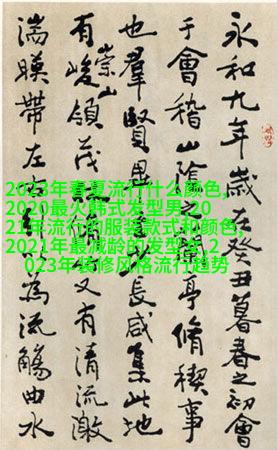 永和九年歲在癸丑暮春之初會
于會稽山陰之蘭亭脩稧事
也羣賢畢長咸集此地
有崇山峻領茂又有清流激
湍暎帶左右為流觴曲水
2023年春夏流行什么颜色,
2020最火韩式发型男,20
21年流行的服装款式和颜色,
2021年最减龄的发型女,2
023年装修风格流行趋势